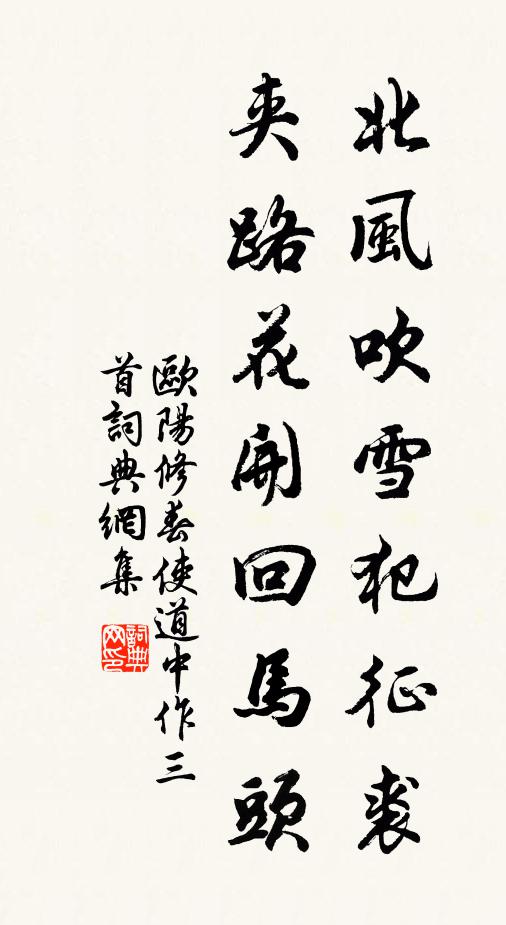 北風吹雪犯征裘
夾路花開回馬頭
歐陽修奉使道中作三
首詞典網集
詞典
网印